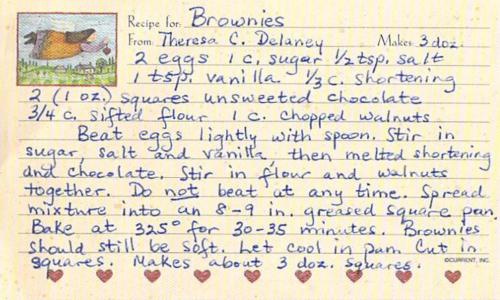 Recipe for: Brownies
From Theresa C. Delaney Makes 3 doz.
2 eggs 1 c. sugar 1/2 tsp. salt
1 tsp. vanilla. 1/3 c. shortening
2 (1 oz.) squares unsweeted chocolate
3/4 c. sifted flour 1 c. chopped walnuts
Beat eggs lightly with spoon. Stir in
sugar, salt and vanilla, then melted shortening
and chocolate. Stir in flour and walnuts
together. Do not beat at any time. Spread
mixture into an 8-9 in. greased square pan.
Bake at 325° for 30-35 minutes. Brownies
should still be soft. Let cool in pam. Cut in
squares. Makes about 3 doz. squares.
©CURRENT, INC.